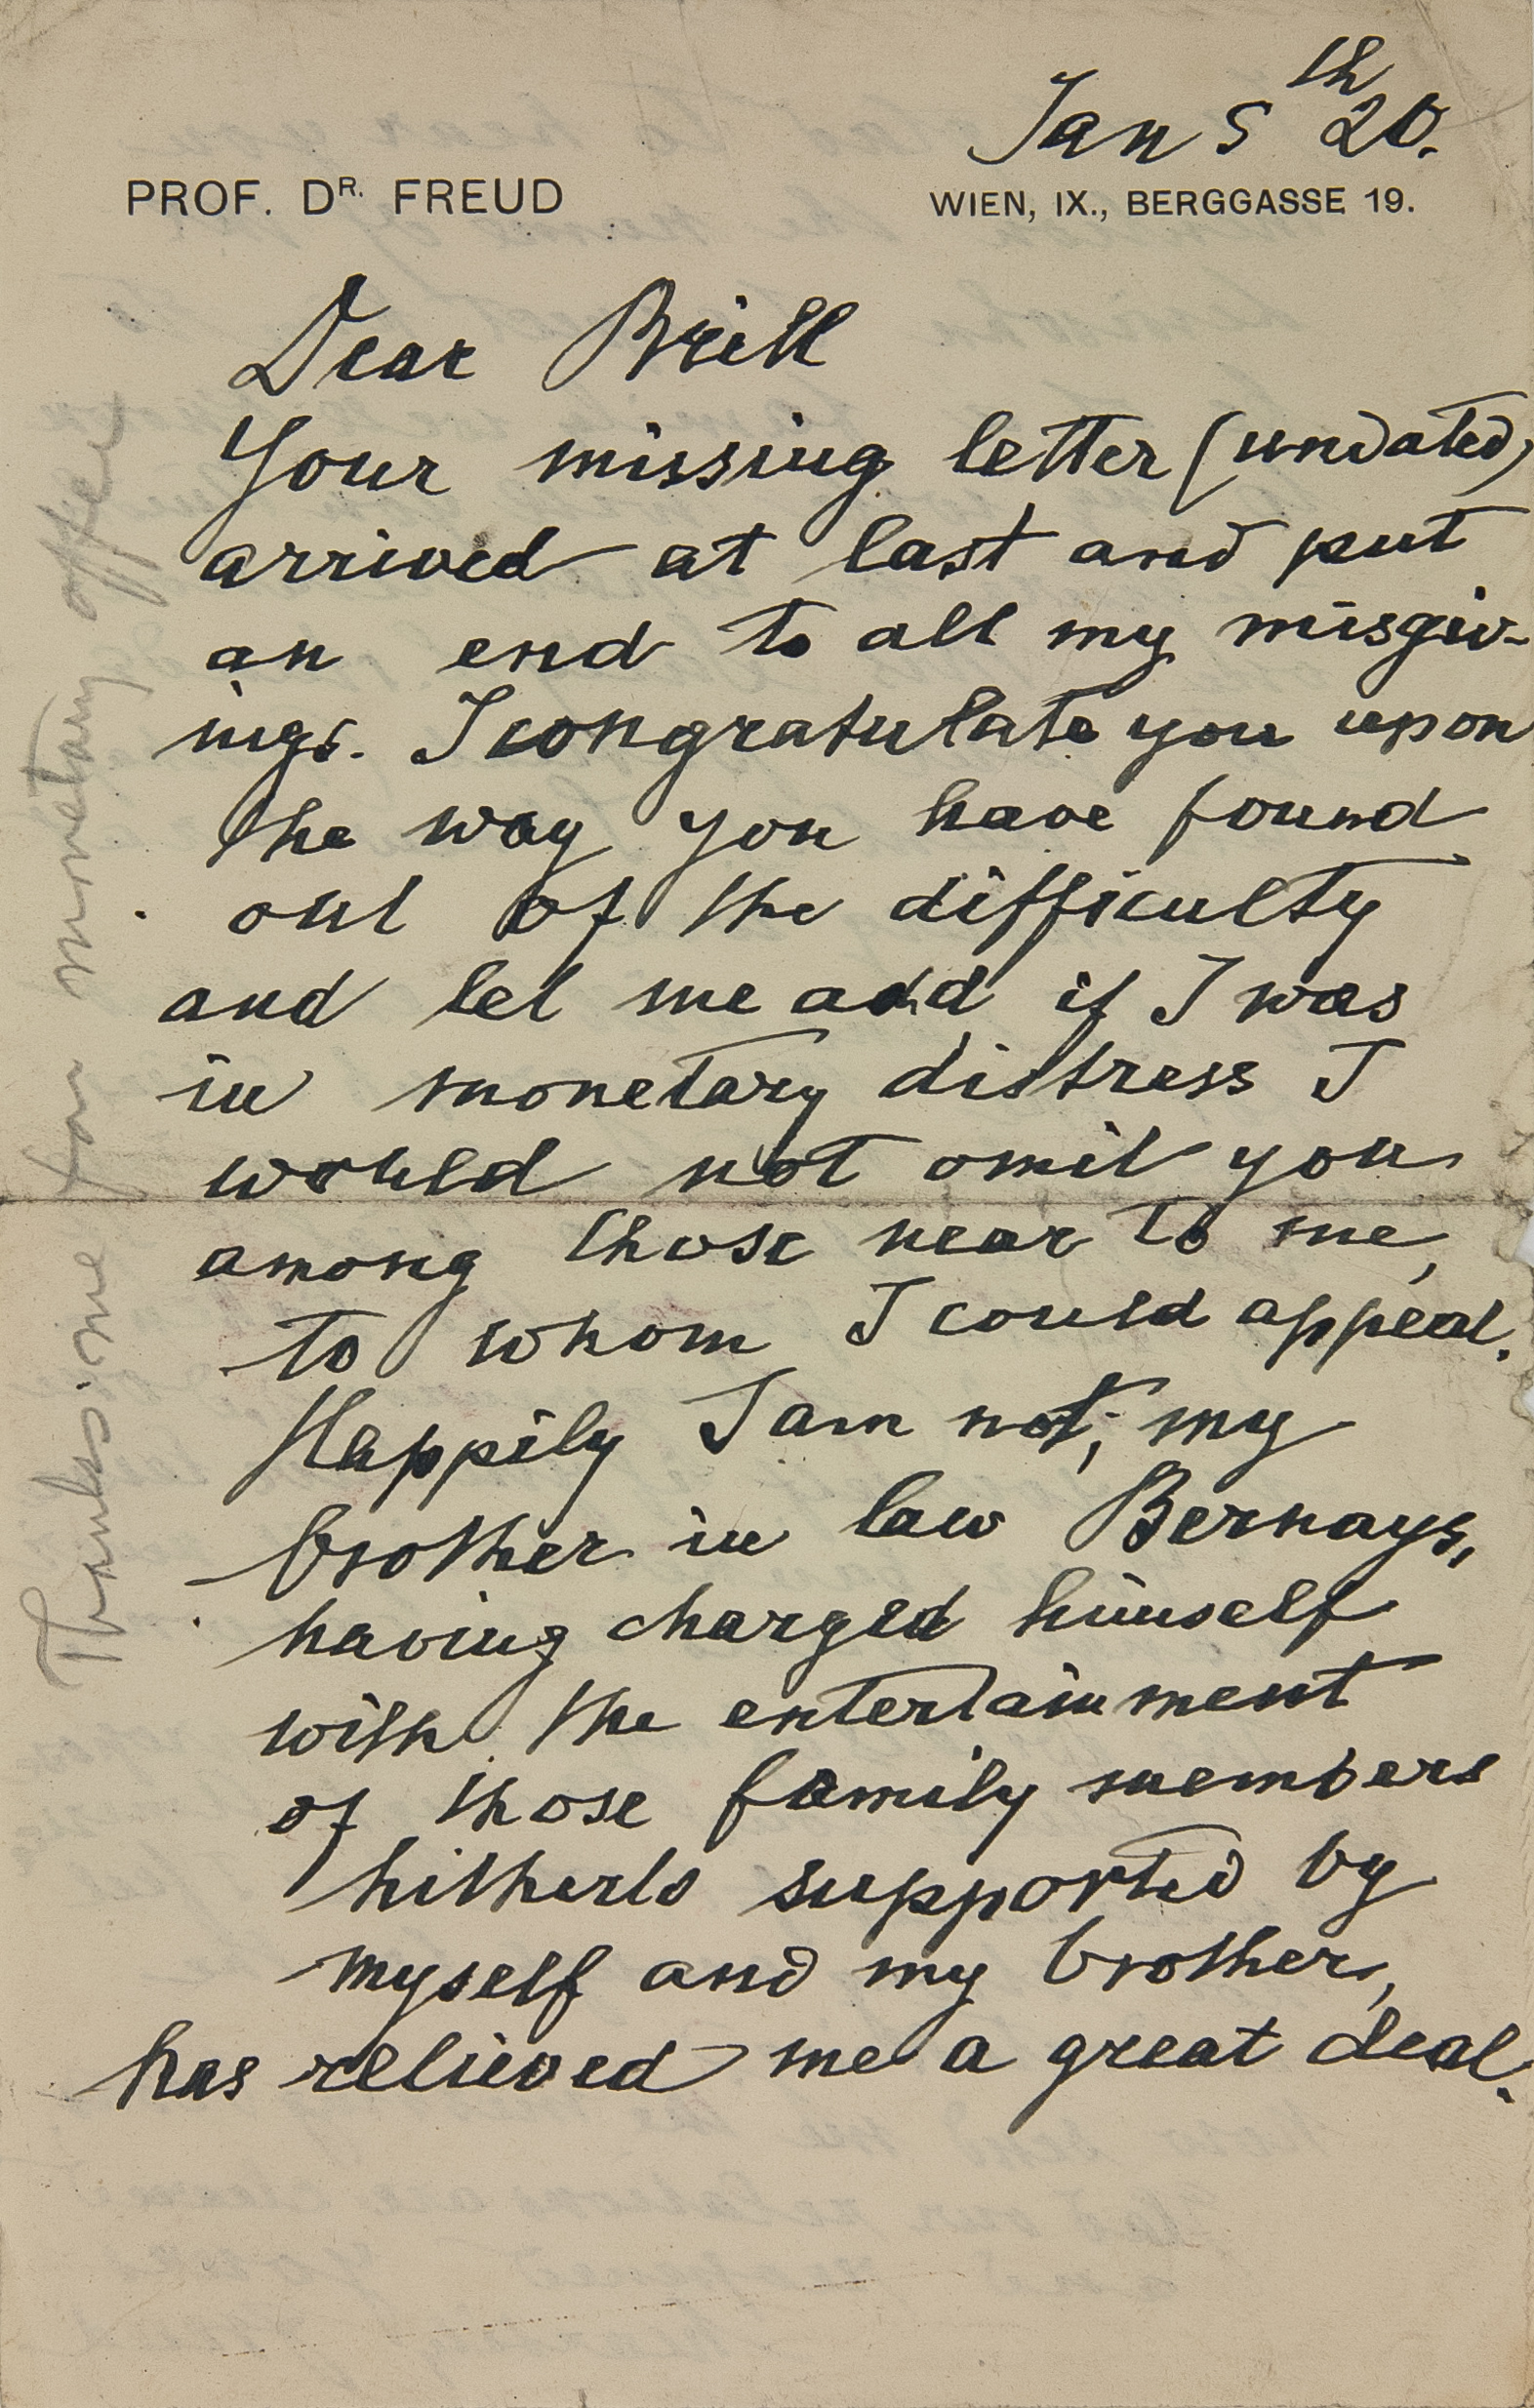 Jan 5th 20.
PROF. DR. FREUD
WIEN, IX., BERGGASSE 19.
Dear Brill
Your missing letter (undated)
arrived at last and put
an end to all my misgiv-
ings. I congratulate you upon
the way you have found
out of the difficulty
and let me add if I was
in monetary distress I
would not omit you
among those near to me,
to whom I could appeal.
Happily I am not; my
brother in law Bernays,
having charged himself
with the entertainment
of those family members
hitherto supported by
myself and my brother,
has relieved me a great deal.
Thanks me for monetary offer